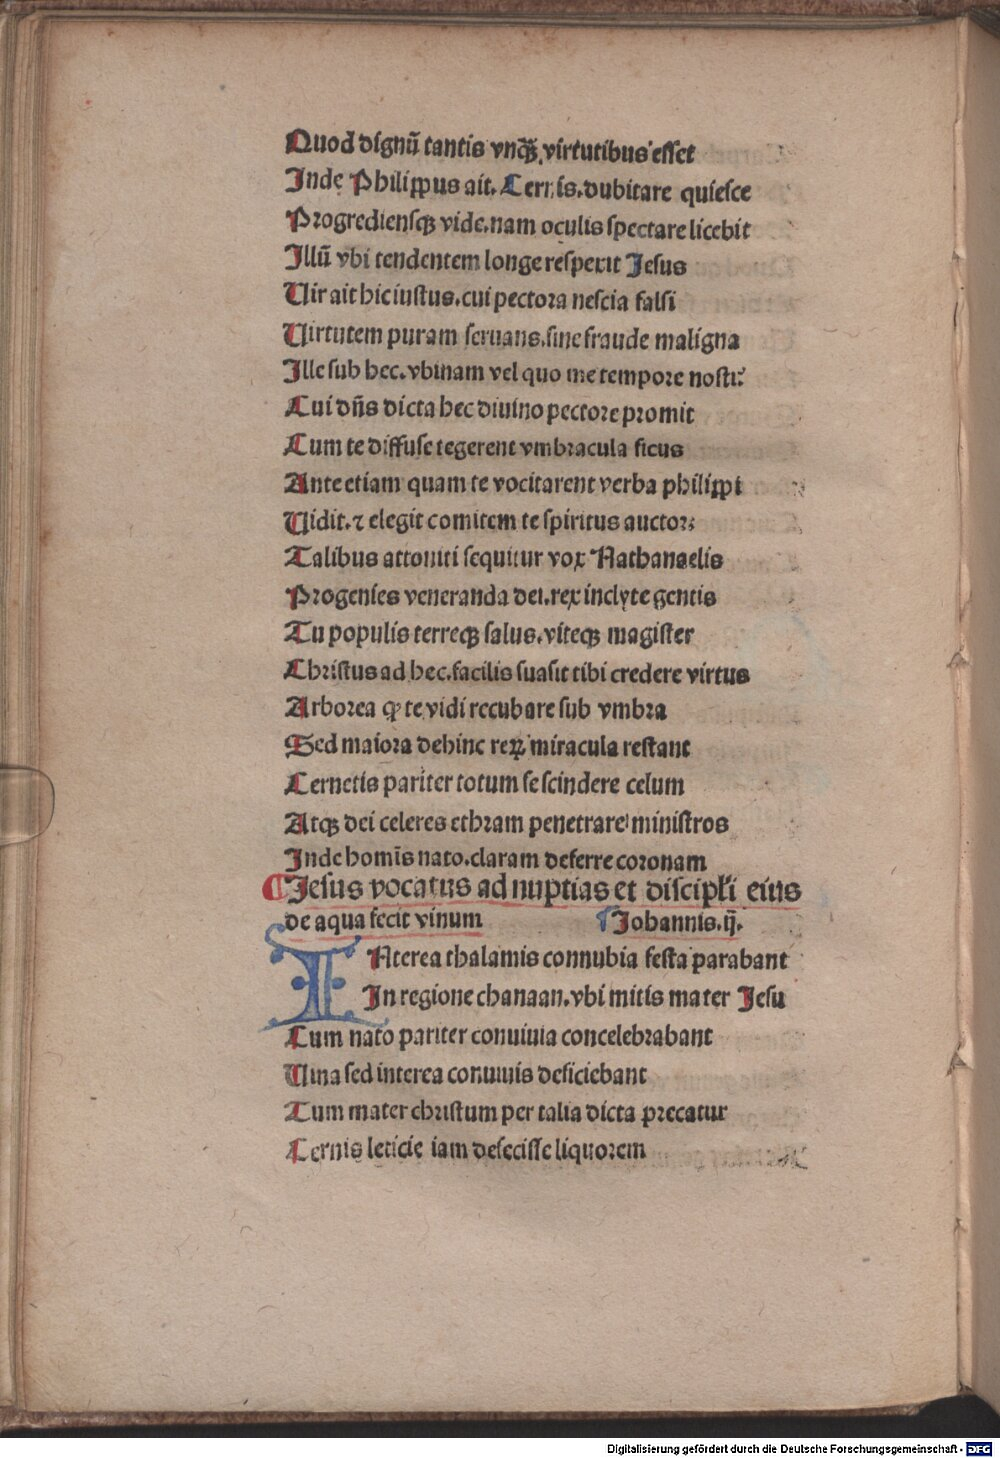 Quod dignũ tantis vnꝙ̃ virtutibus esset
Inde Philippus ait. Cernis. dubitare quiesce
Progrediensqꝫ vide. nam oculis spectare licebit
Illũ vbi tendentem longe respexit Jesus
Uir ait hic iustus. cui pectora nescia falsi
Uirtutem puram seruans. sine fraude maligna
Ille sub hec. vbinam vel quo me tempore nosti?
Cui dñs dicta hec diuino pectore promit
Cum te diffuse tegerent vmbracula ficus
Ante etiam quam te vocitarent verba philippi
Uidit. ⁊ elegit comitem te spiritus auctor.
Talibus attoniti sequitur vox Nathanaelis
Progenies veneranda dei. rex inclyte gentis
Tu populis terreqꝫ salus. viteqꝫ magister
Christus ad hec. facilis suasit tibi credere virtus
Arborea ꝙ te vidi recubare sub vmbra
Sed maiora dehinc reꝝ miracula restant
Cernetis pariter totum se scindere celum
Atqꝫ dei celeres ethram penetrare ministros
Inde homĩs nato. claram deferre coronam
¶ Jesus vocatus ad nuptias et discipĺi eius
de aqua fecit vinum ¶ Johannis. ij̃.
INterea thalamis connubia festa parabant
In regione chanaan. vbi mitis mater Jesu
Cum nato pariter conuiuia concelebrabant
Uina sed interea conuiuis deficiebant
Tum mater christum per talia dicta precatur
Cernis leticie iam defecisse liquorem
Digitalisierung gefördert durch die Deutsche Forschungsgemeinschaft - DFG